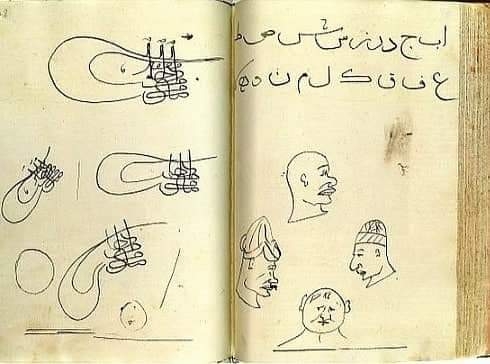 ا ب ج د ر س ش ص ط
ع ف ق ك ل م ن و ه